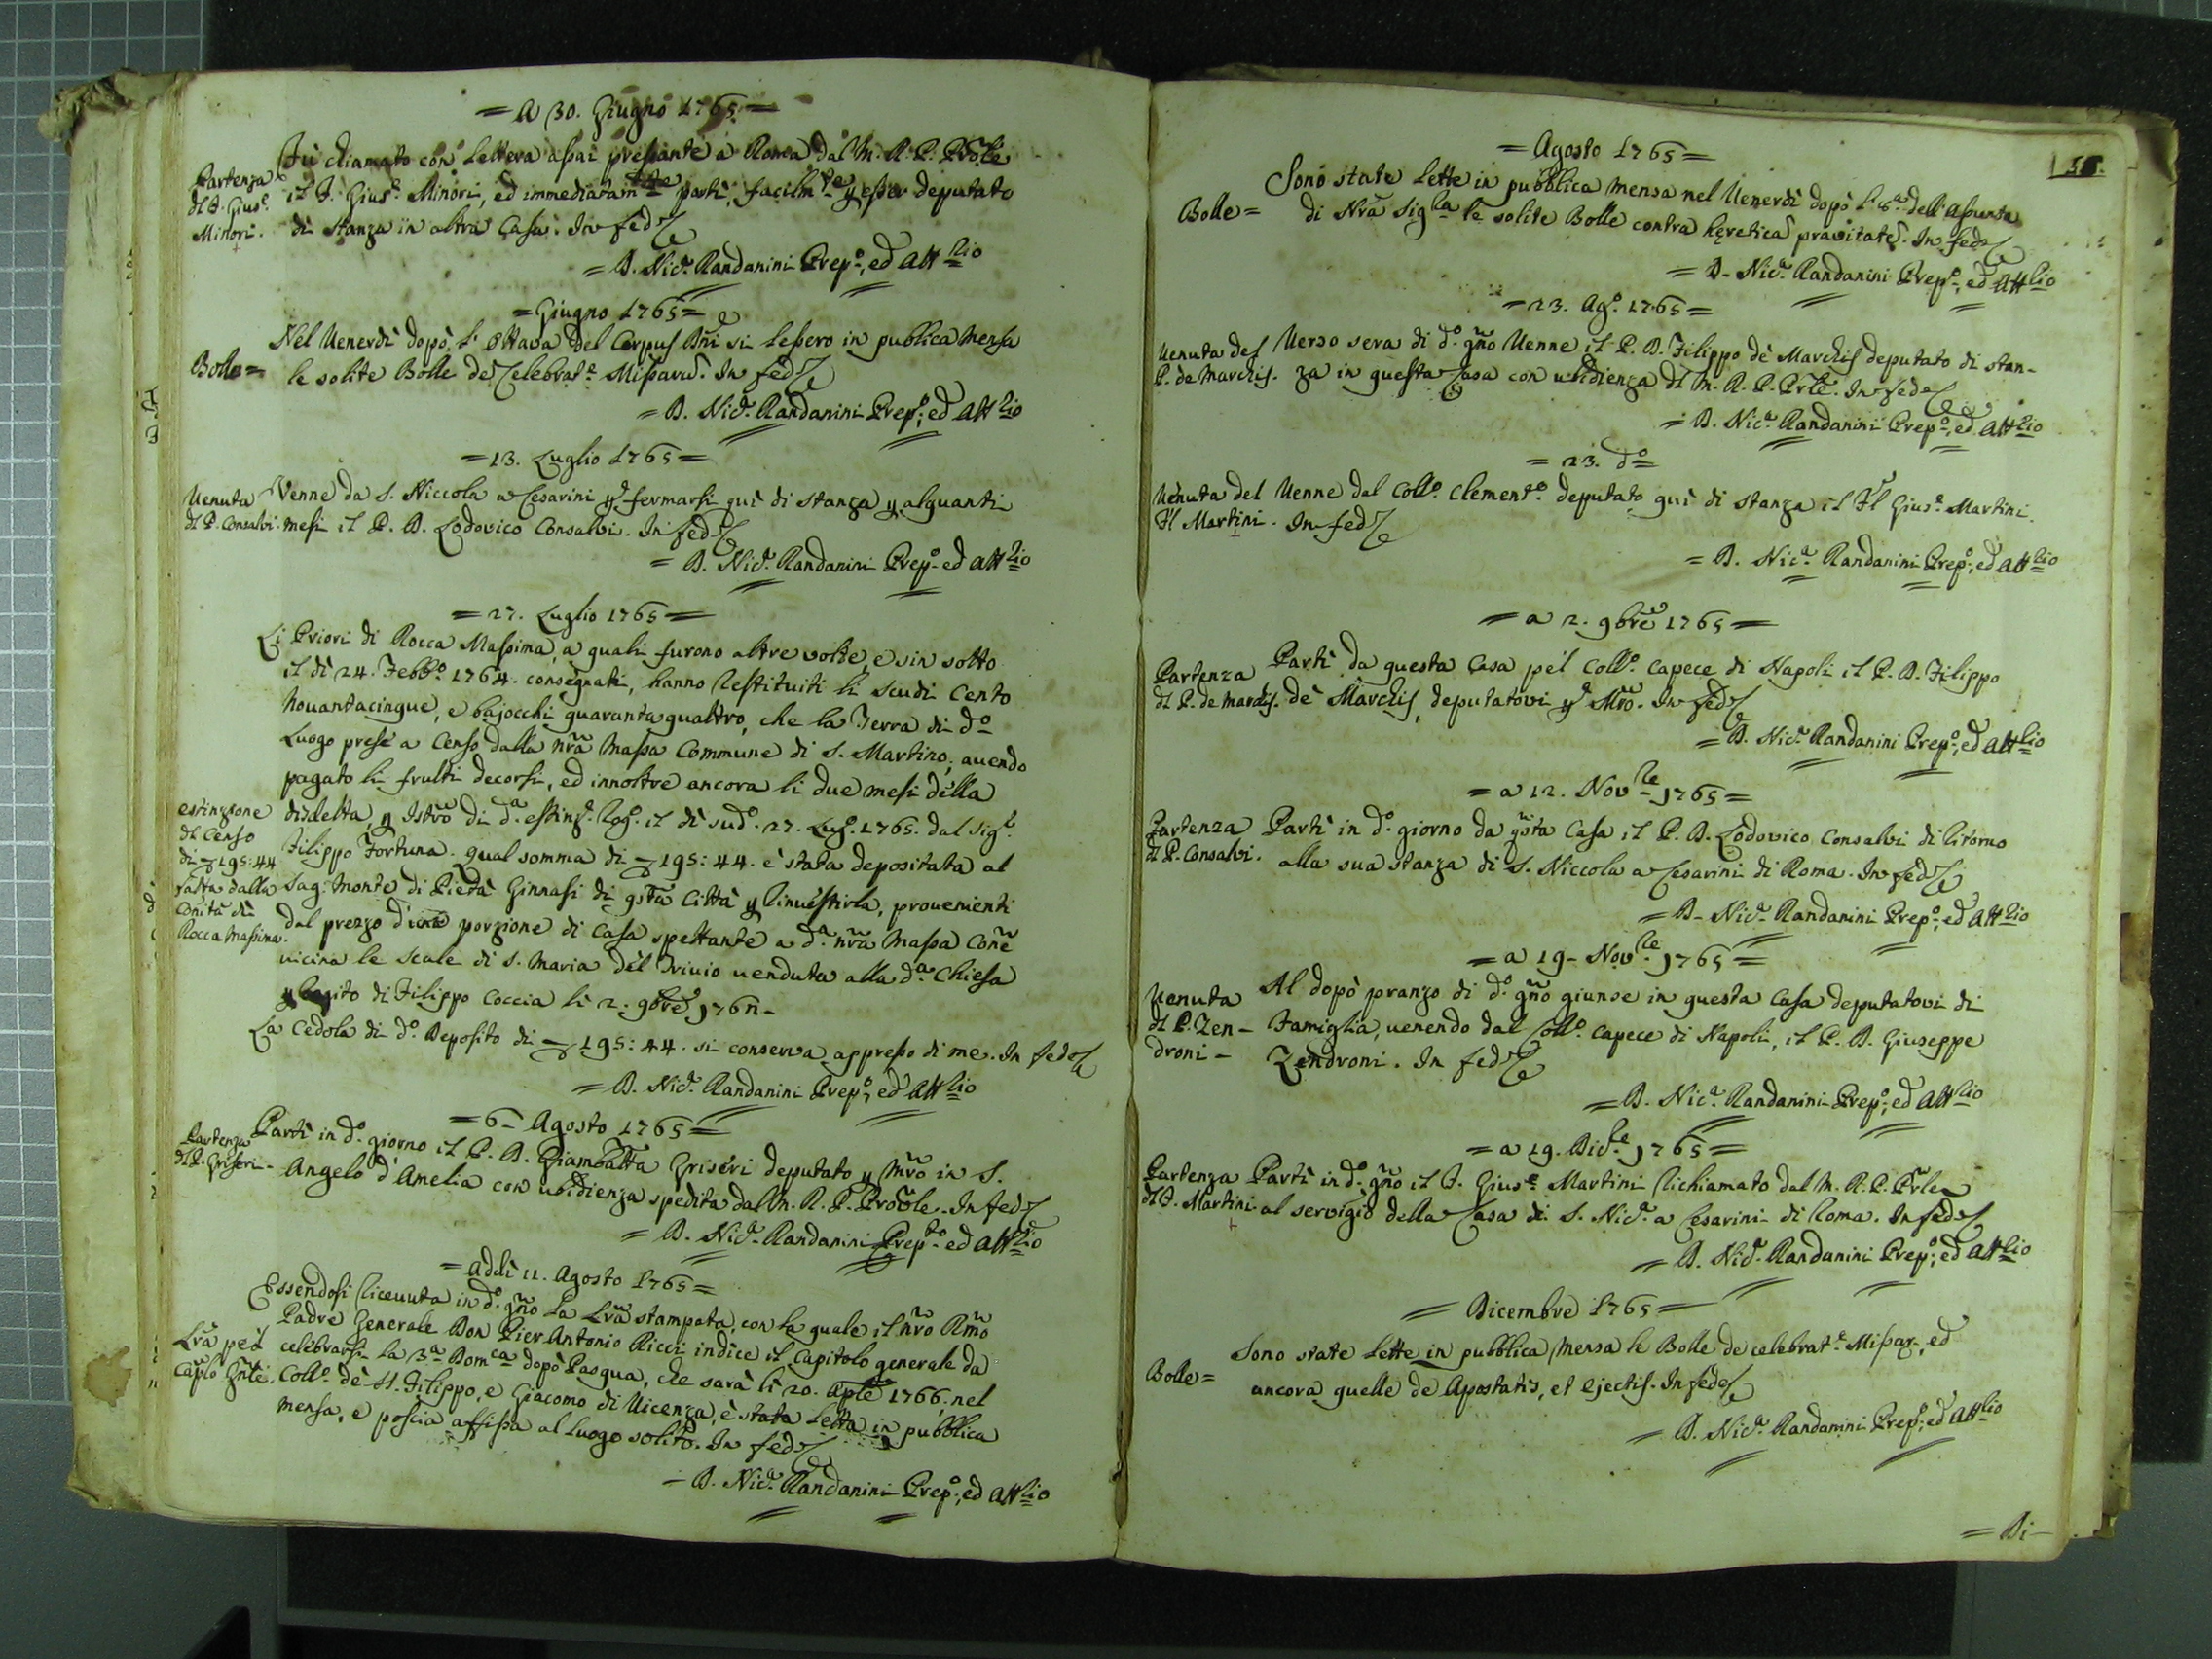 = A 30. Giugno 1765 =
Partenza
del F. Gius.e
Minori.
Fù chiamato con lettera assai pressante a Roma dal M. R. P. Prõle
il F. Gius.e Minori, ed immediatam.te partì, facilm.te p esser deputato
di stanza in altra Casa. In fede
= D. Nic.a Randanini Prep.o, ed Att.rio
= Giugno 1765 =
Bolle =
Nel Venerdì dopò l'Ottava del Corpus Dñi si lessero in publica mensa
le solite Bolle de Celebrat.e Missarũ. In fede
= D. Nic.a Randanini Prep.o, ed Att.rio
= 13. Luglio 1765 =
Venuta
del P. Consalvi.
Venne da S. Niccola a Cesarini p fermarsi quì di stanza p alquanti
mesi il P. D. Lodovico Consalvi. In fede
= D. Nic.a Randanini Prep.o ed Att.rio
= 27. Luglio 1765 =
Li Priori di Rocca Massima, a quali furono altre volte, e sin sotto
il dì 24. Febb.o 1764. consegnati, hanno restituiti li scudi Cento
Novantacinque, e bajocchi quaranta quattro, che la Terra di d.o
Luogo prese a Censo dalla nrã Massa Commune di S. Martino, avendo
pagato li frutti decorsi, ed innoltre ancora li due mesi della
estinzione
del Censo
di 195:44
fatta dalla
Coñità di
Rocca Massima.
disdetta, p Istrõ di d.a estinz.e rog.o il dì sud.o 27. Lug.o 1765. dal Sig.r
Filippo Fortuna. qual somma di 195:44. è stata depositata al
Sag. Monte di Pietà Ginnasi di qstã Città p rinvestirla, provenienti
dal prezzo d'una porzione di Casa spettante a d.a nrã Massa Coñe
vicina le scale di S. Maria del Trivio venduta alla d.a Chiesa
di Filippo Coccia li 2. 9brẽ 176
La Cedola di d.o Deposito di 195:44. si conserva appresso di me. In fede
= D. Nic.a Randanini Prep.o, ed Att.rio
= 6 Agosto 1765 =
Partenza
del P. Griseri
Partì in d.o giorno il P. D. Giambattã Griseri deputato p Mrõ in S.
Angelo d'Amelia con ubidienza spedita dal M. R. P. Provle. In fede
= D. Nic.a Randanini Prep.to ed Att.rio
= addì 11. Agosto 1765 =
Lrã pel
Capło Gñle.
Essendosi ricevuta in d.o gño la Lrã stampata, con la quale il nrõ Rmõ
Padre Generale Don Pier Antonio Ricci indice il Capitolo generale da
celebrarsi la 3.a Dom.ca dopò Pasqua, che sarà li 20. Aplẽ 1766. nel
Coll.o de SS. Filippo, e Giacomo di Vicenza, è stata letta in pubblica
mensa, e poscia affissa al luogo solito. In fede
= D. Nic.a Randanini Prep.o, ed Att.rio
= Agosto 1765 =
Bolle =
Sono state lette in pubblica mensa nel Venerdì dopò l'8.a dell'Assunta
di Nrã Sig.ra le solite Bolle contra hęreticã pravitatẽ. In fede
= D. Nic.a Randanini Prep.o, ed Att.rio
= 23. Ag.o 1765 =
Venuta del
P. de Marchis.
Verso sera di d.o gño Venne il P. D. Filippo de Marchis deputato di stan-
za in questa Casa con ubidienza del M. R. P. Prlẽ. In fede
= D. Nic.a Randanini Prep.o, ed Att.rio
= 23. d.o =
Venuta del
Fl Martini.
Venne dal Coll.o Clement.o deputato quì di stanza il Fl Gius.e Martini.
In fede
= D. Nic.a Randanini Prep.o, ed Att.rio
= a 2. 9brẽ 1765 =
Partenza
del P. de Marchis.
Partì da questa Casa pel Coll.o Capece di Napoli il P. D. Filippo
de Marchis, deputatovi p Mrõ. In fede
= D. Nic.a Randanini Prep.o, ed Att.rio
= a 12. Nov.re 1765 =
Partenza
del P. Consalvi.
Partì in d.o giorno da qstã Casa il P. D. Lodovico Consalvi di ritorno
alla sua stanza di S. Niccola a Cesarini di Roma. In fede
= D. Nic.a Randanini Prep.o, ed Att.rio
= a 19 Nov.re 1765 =
Venuta
del P. Zen-
droni
Al dopò pranzo di d.o gño giunse in questa Casa deputatovi di
Famiglia, venendo dal Coll.o Capece di Napoli, il P. D. Giuseppe
Zendroni. In fede
= D. Nic.a Randanini Prep.o, ed Att.rio
= a 19. Dic.re 1765 =
Partenza
del F. Martini
Partì in d.o gño il F. Gius.e Martini richiamato dal M. R. P. Prłe
al servigio della Casa di S. Nic.a a Cesarini di Roma. In fede
= D. Nic.a Randanini Prep.o, ed Att.rio
= Dicembre 1765 =
Bolle =
Sono state lette in pubblica mensa le Bolle de celebrat.e Missar. ed
ancora quelle de Apostatis, et ejectis. In fede
= D. Nic.a Randanini Prep.o, ed Att.rio
= Di